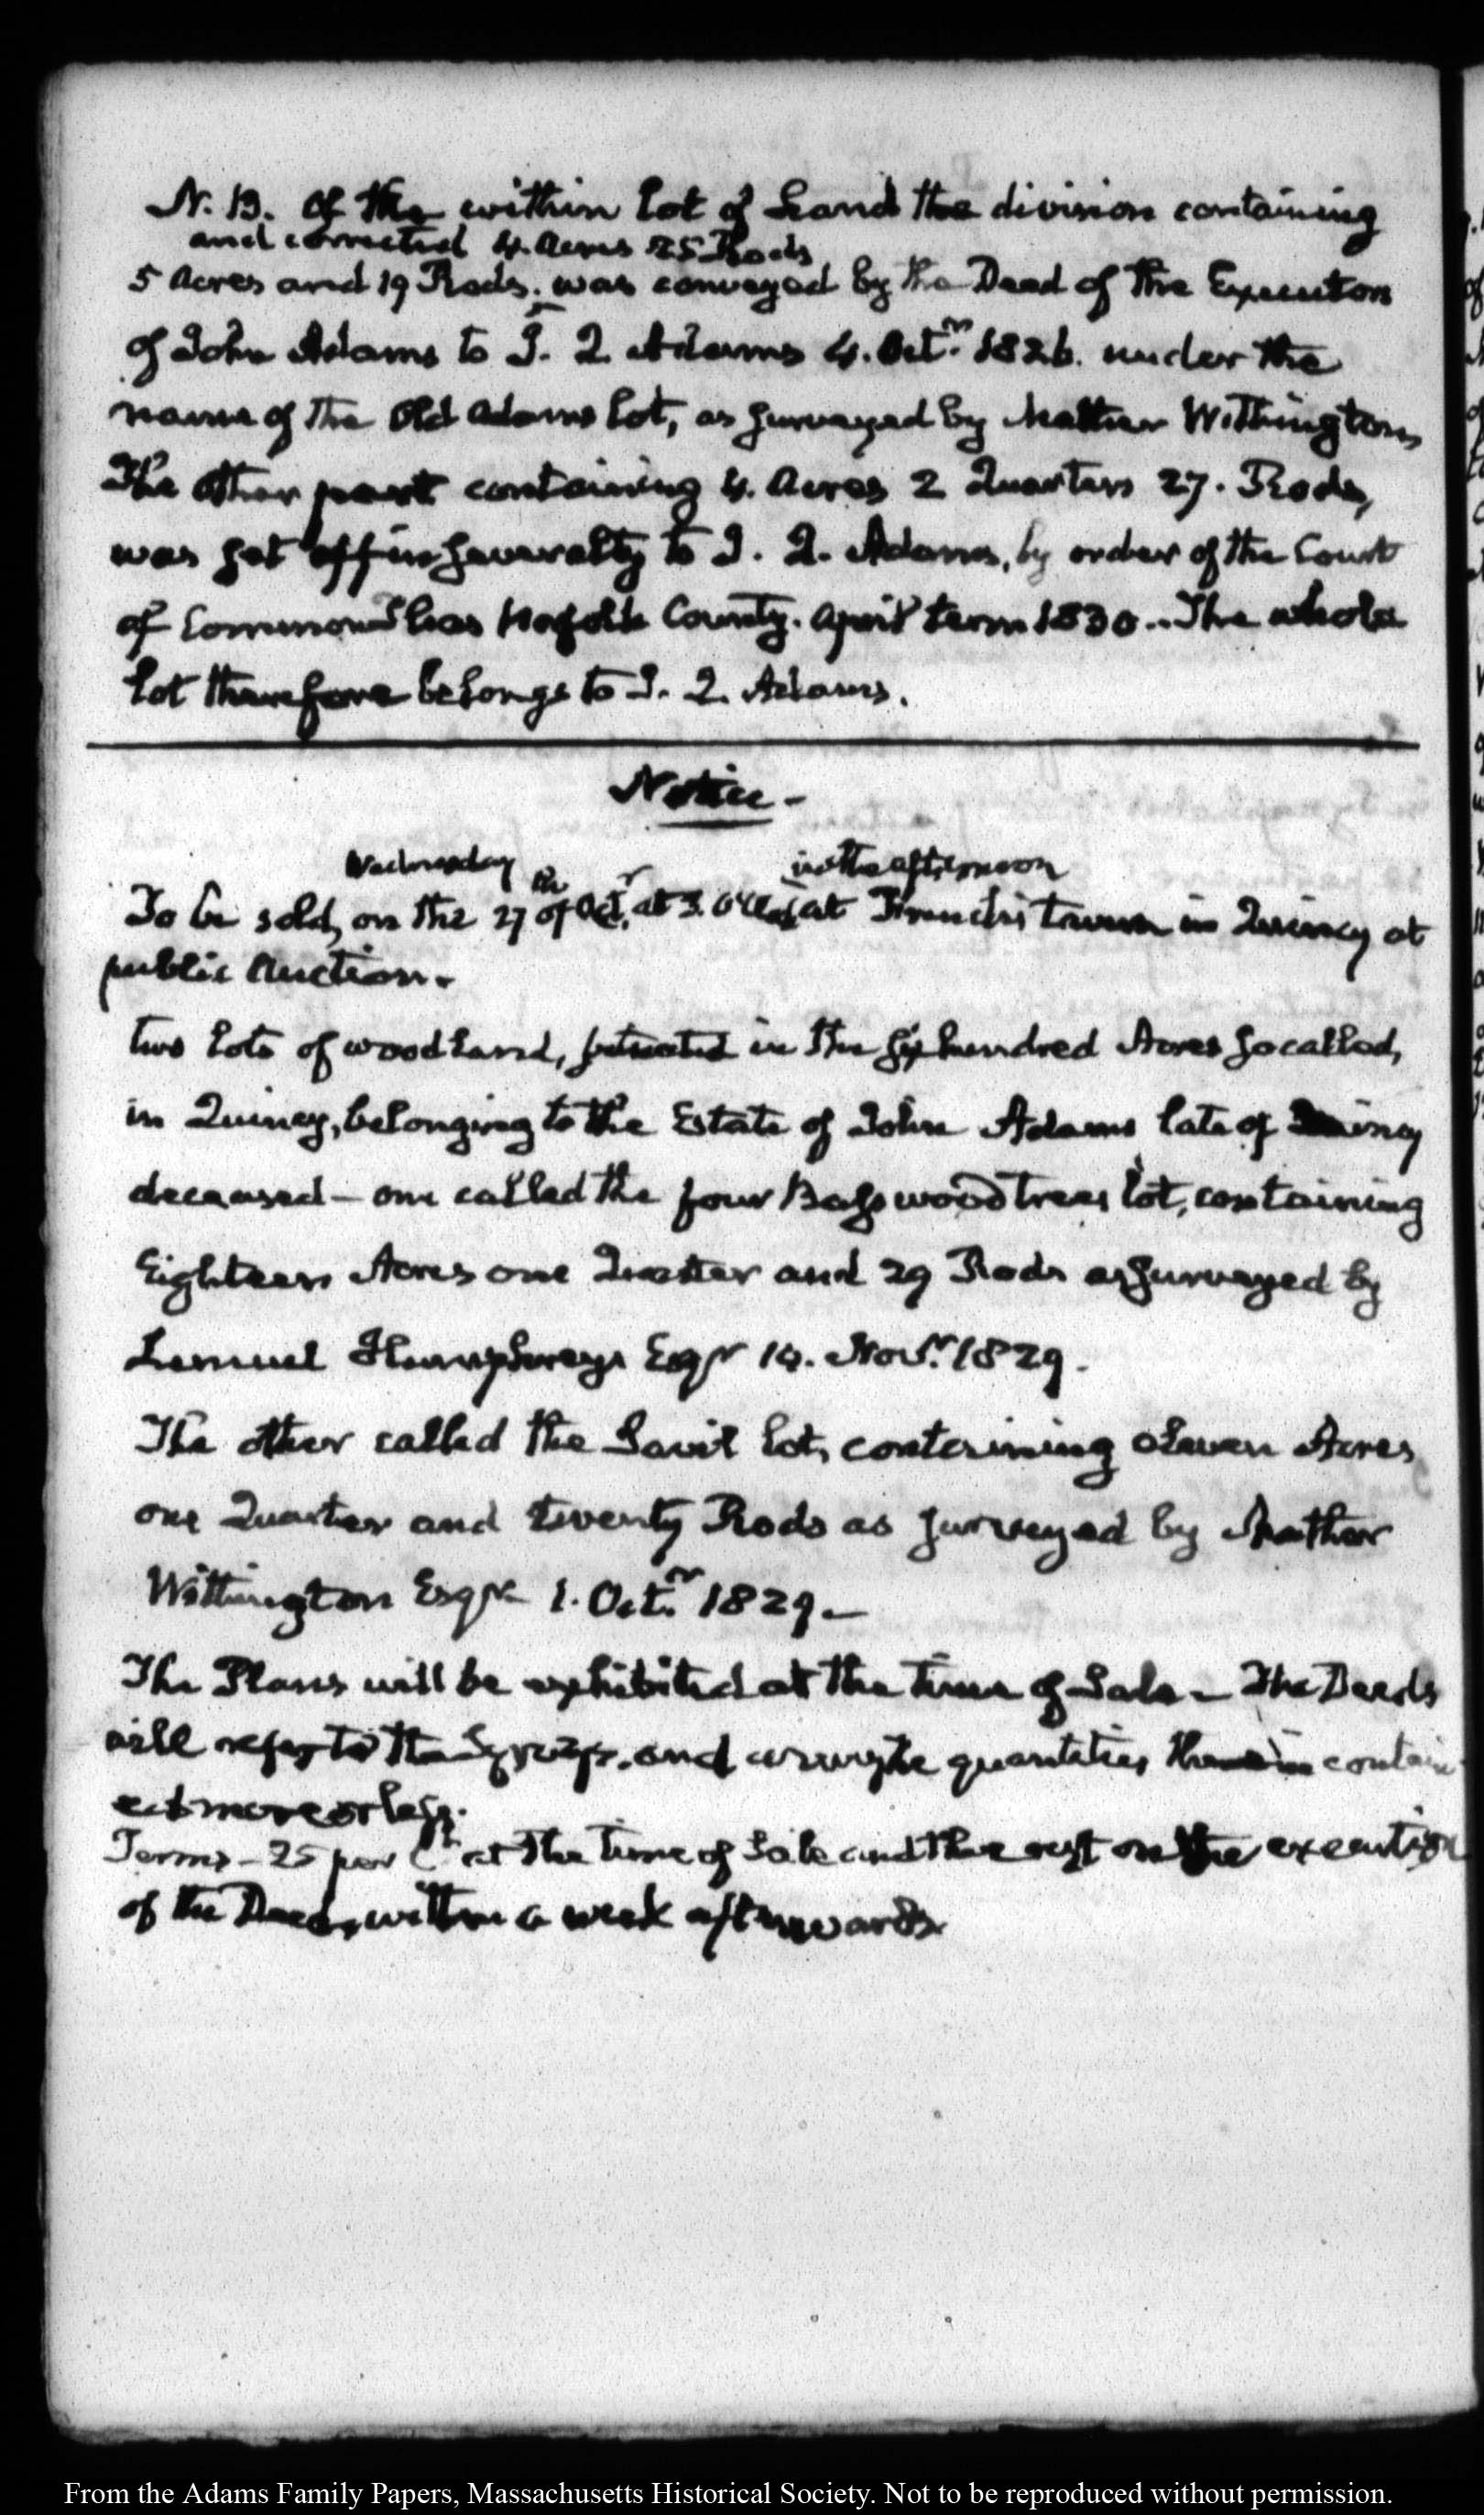 N. B. Of the within lot of Land the division containing
and corrected 4. Acres 25 Rods
5 Acres and 19 Rods. was conveyed by the Deed of the Executors
of John Adams to J. Q. Adams 4. Octr. 1826. under the
name of the Old Adams lot, as surveyed by Mather Withington,
The other part containing 4. Acres 2 Quarters 27. Rods,
was set off in severalty to J. Q. Adams, by order of the Court
of Common Pleas Norfolk County. April term 1830.. The whole
lot therefore belongs to J. Q. Adams.
Notice -
Wednesday in the afternoon
To be sold, on the 27th of Octr. at 3. at tavern in Quincy at
public Auction.
two lots of woodland, situated in the six hundred Acres so called,
in Quincy, belonging to the Estate of John Adams late of Quincy
deceased — one called the four Bass wood trees lot, containing
Eighteen Acres one Quarter and 29 Rods as surveyed by
Lemuel Humphreys Esqr 14. Novr. 1829.
The other called the Savil lot, containing eleven Acres
one Quarter and twenty Rods as surveyed by Mather
Withington Esqr 1. Octr. 1829. —
The Plans will be exhibited at the time of Sale — The Deeds
will refer to the and the quantities therein contain
ed more or less.
Terms — 25 per Ct at the time of Sale and the rest on the execution
of the Deeds, within a week afterwards.
From the Adams Family Papers, Massachusetts Historical Society. Not to be reproduced without permission.